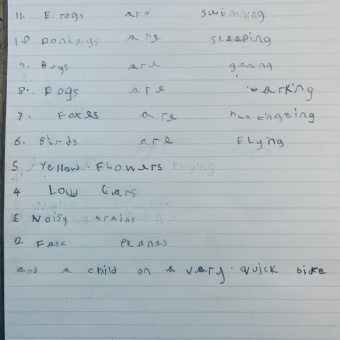 11. Frogs are swimming
10 Donkeys are sleeping
9. Boys are
8. Dogs are barking
7. Foxes are
6. Birds are Flying
5 Yellow Flowers
4 Loud Cars
3 Noisy trains
2 Fast Planes
and a child on a very quick bike